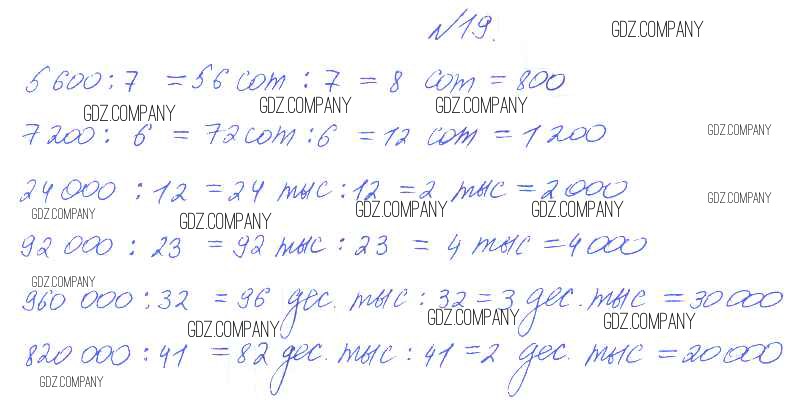 №19. GDZ.COMPANY
5600 : 7 = 56 сот : 7 = 8 сот = 800
GDZ.COMPANY GDZ.COMPANY GDZ.COMPANY
7200 : 6 = 72 сот : 6 = 12 сот = 1200 GDZ.COMPANY
24000 : 12 = 24 тыс : 12 = 2 тыс = 2000 GDZ.COMPANY
GDZ.COMPANY GDZ.COMPANY GDZ.COMPANY GDZ.COMPANY
92 000 : 23 = 92 тыс : 23 = 4 тыс = 4000
GDZ.COMPANY
960 000 : 32 = 96 дес. тыс : 32 = 3 дес. тыс = 30000
GDZ.COMPANY GDZ.COMPANY GDZ.COMPANY
820 000 : 41 = 82 дес. тыс : 41 = 2 дес. тыс = 20000
GDZ.COMPANY